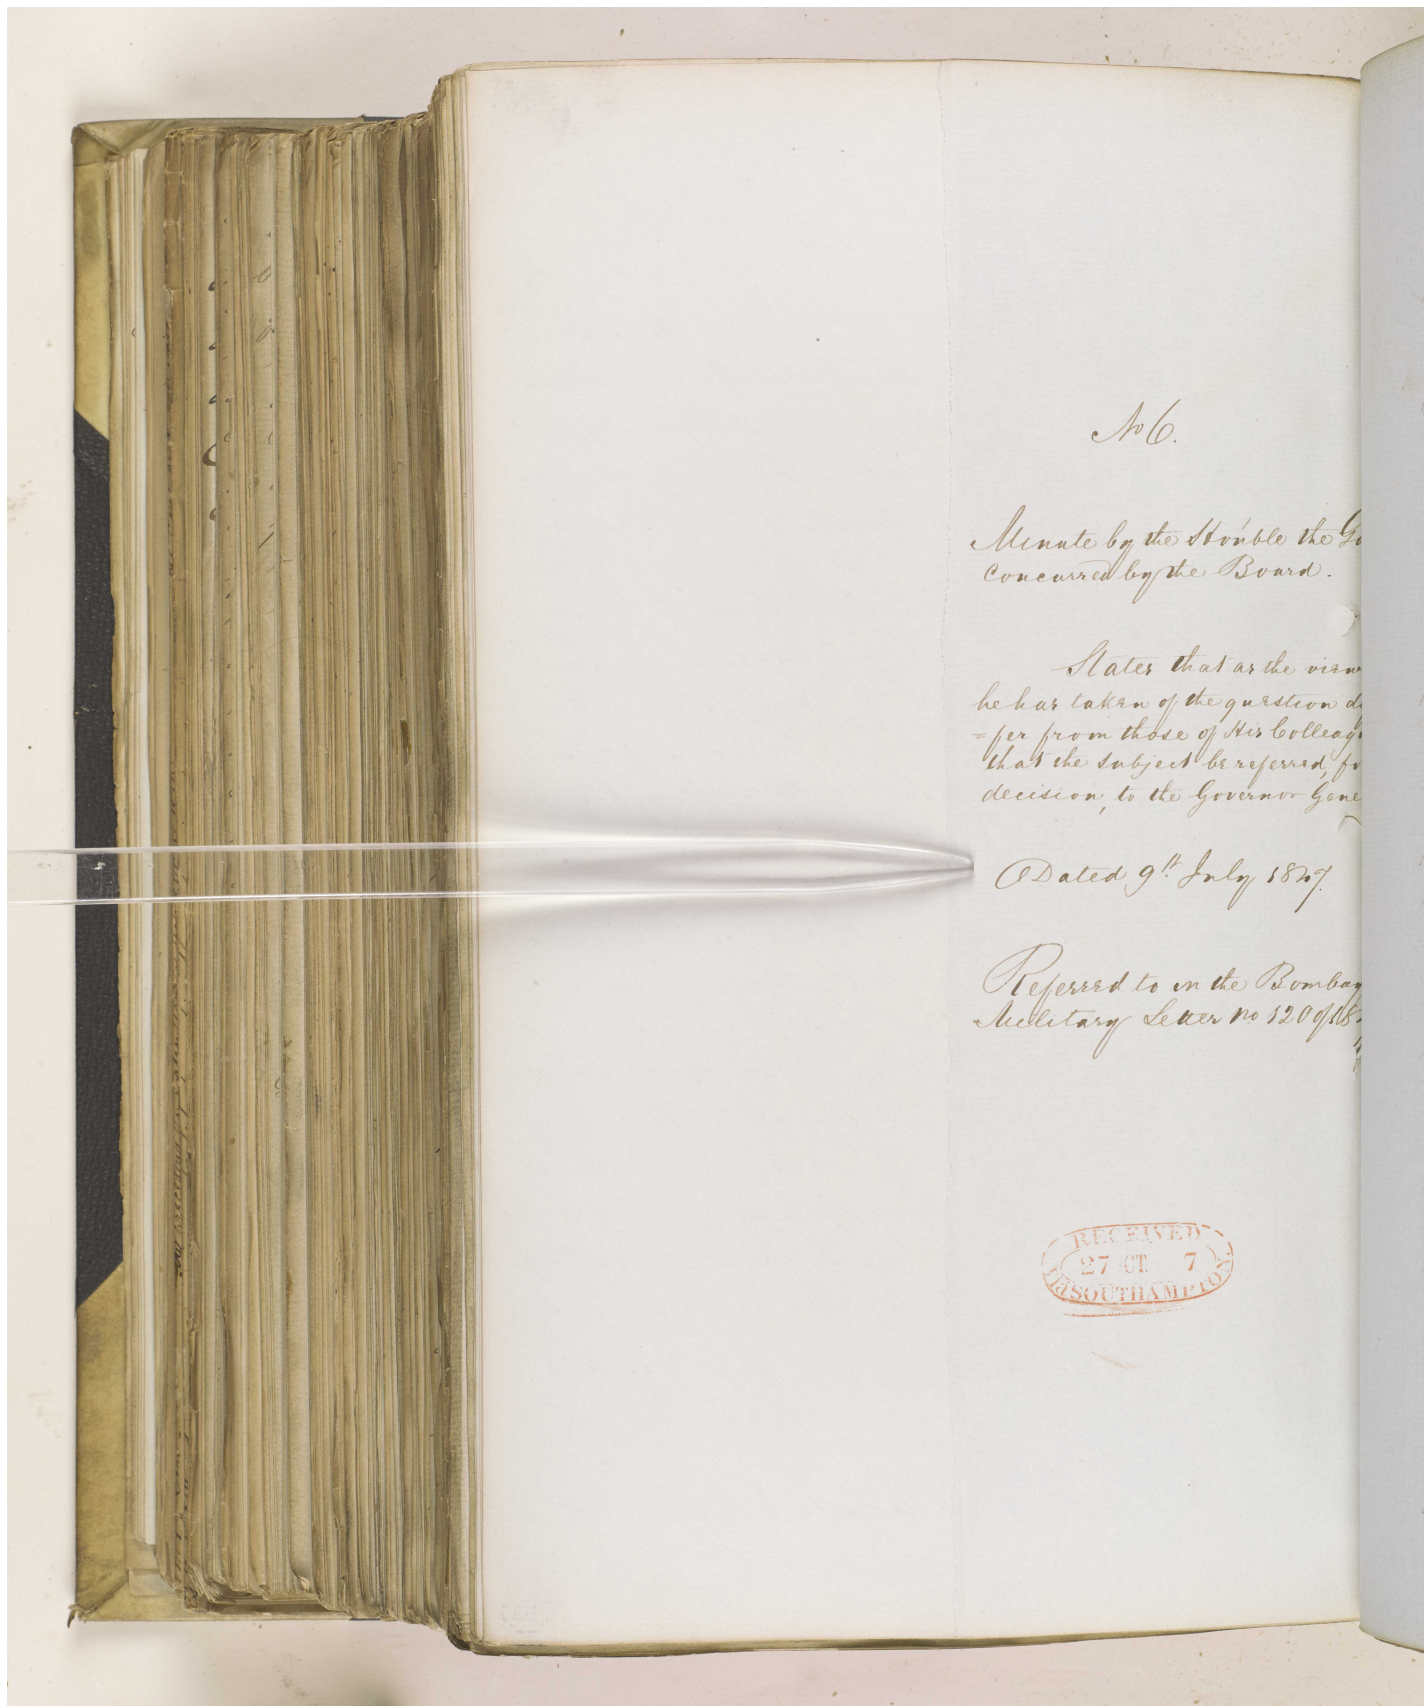 No 6.
Minute by the Hon'ble the Go
Concurred by the Board.
States that as the view
he has taken of the question di
=fer from those of His Colleagu
that the subject be referred, fo
decision, to the Governor Gene
Dated 9th July 1847.
Referred to in the Bombay
Military Letter no 120 of 184
RECEIVED
27 OCT. 7
Via SOUTHAMPTON.